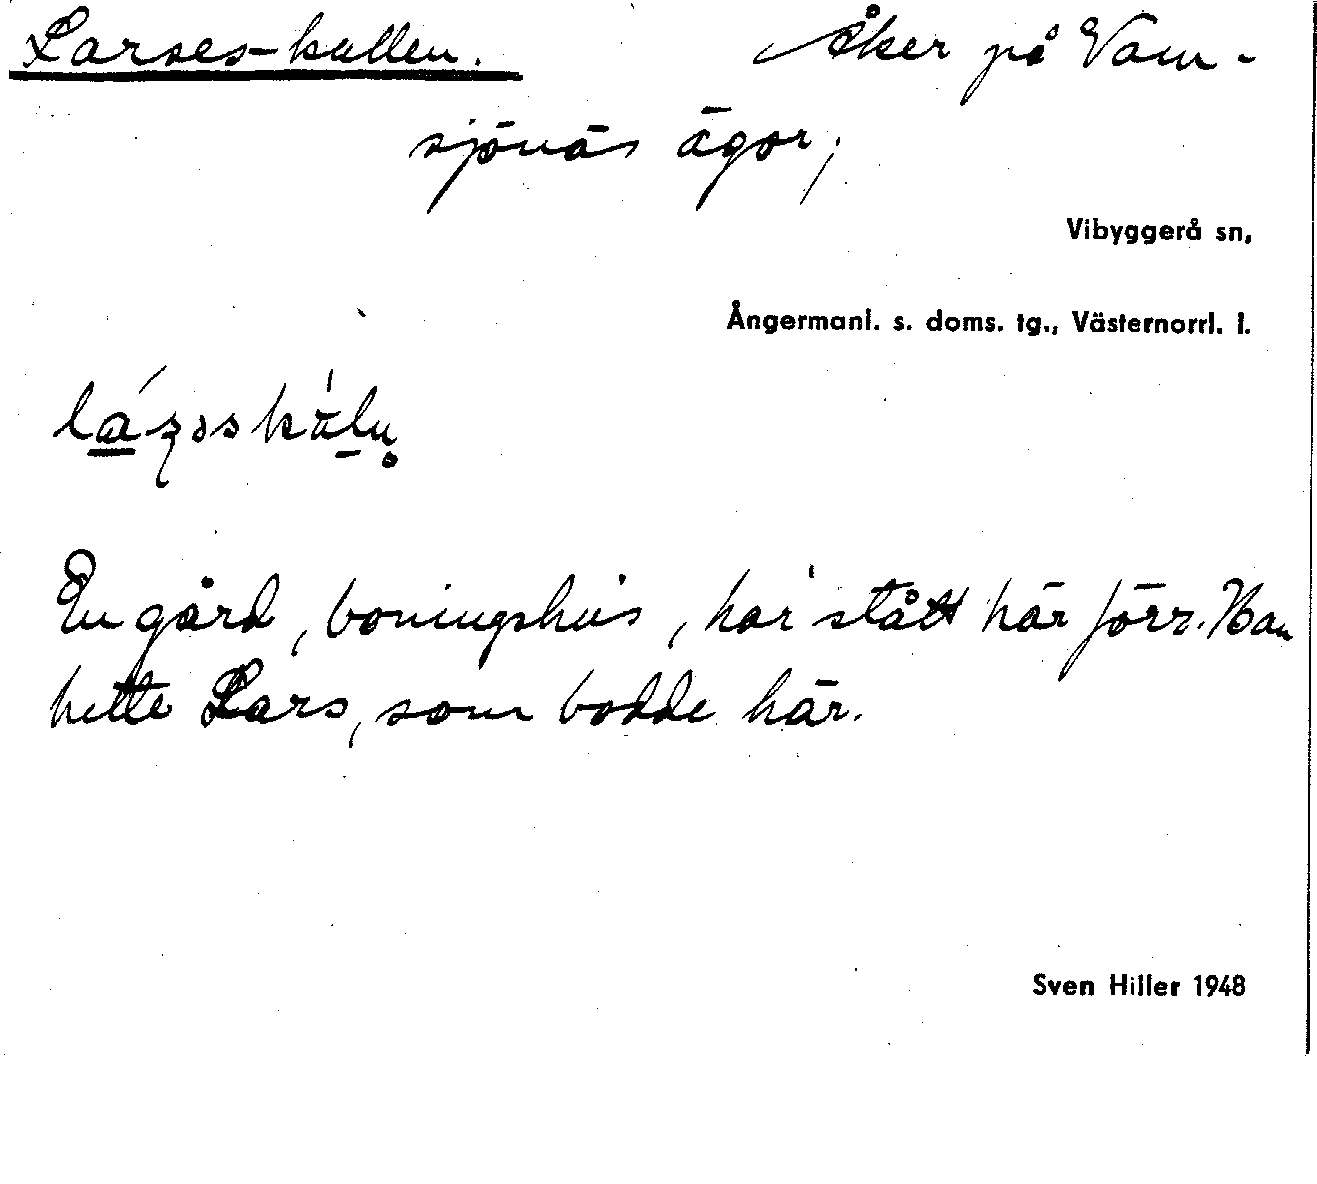 Larses-kullen. Åker på Vam-
sjönäs ägor,
Vibyggerå sn,
Ångermanl. s. doms. tg., Västernorrl. l.
En gård, boningshus, har stått här förr. Han
hette Lars, som bodde här.
Sven Hiller 1948